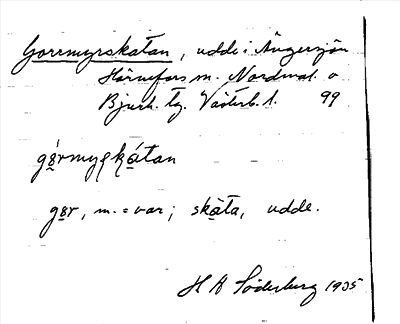 Gorrmyrskatan, udde i Ängersjön
Hörnefors m. Nordmal. o
Bjurh. tg. Västerb. l. 99
górmyrkátan
gor, m. = var; skàta, udde.
H A Söderberg 1935